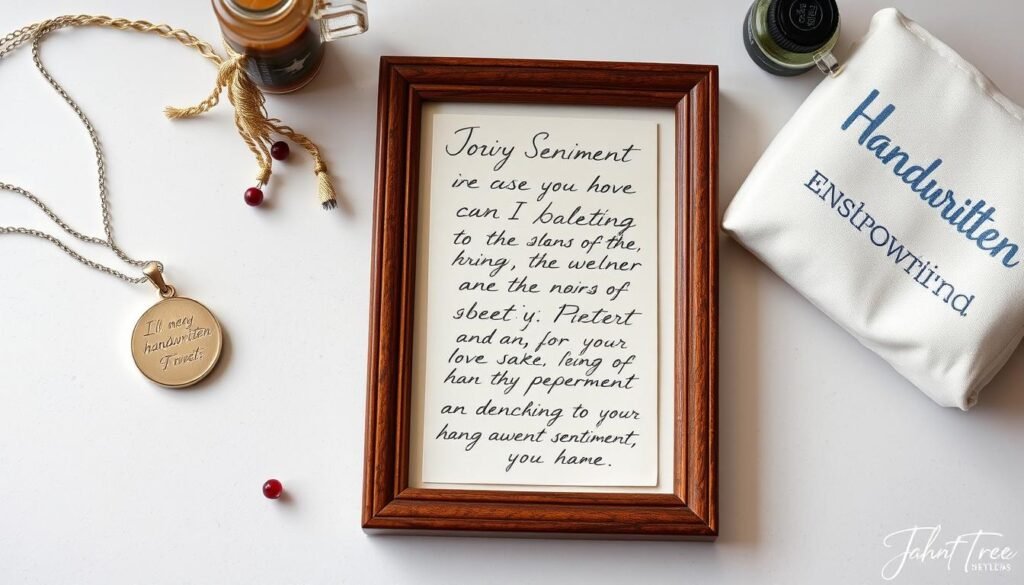 Joriy Seniment
ire case you hove
can I baleting
to the slans of the,
hring, the welner
ane the noirs of
sbeet y. Pietert
and an, for your
love sake, leing of
han thy peperment
an denching to your
hang awent sentiment,
you hame.
I'll nery
handwriten
Handwritten
Jahnt Tree